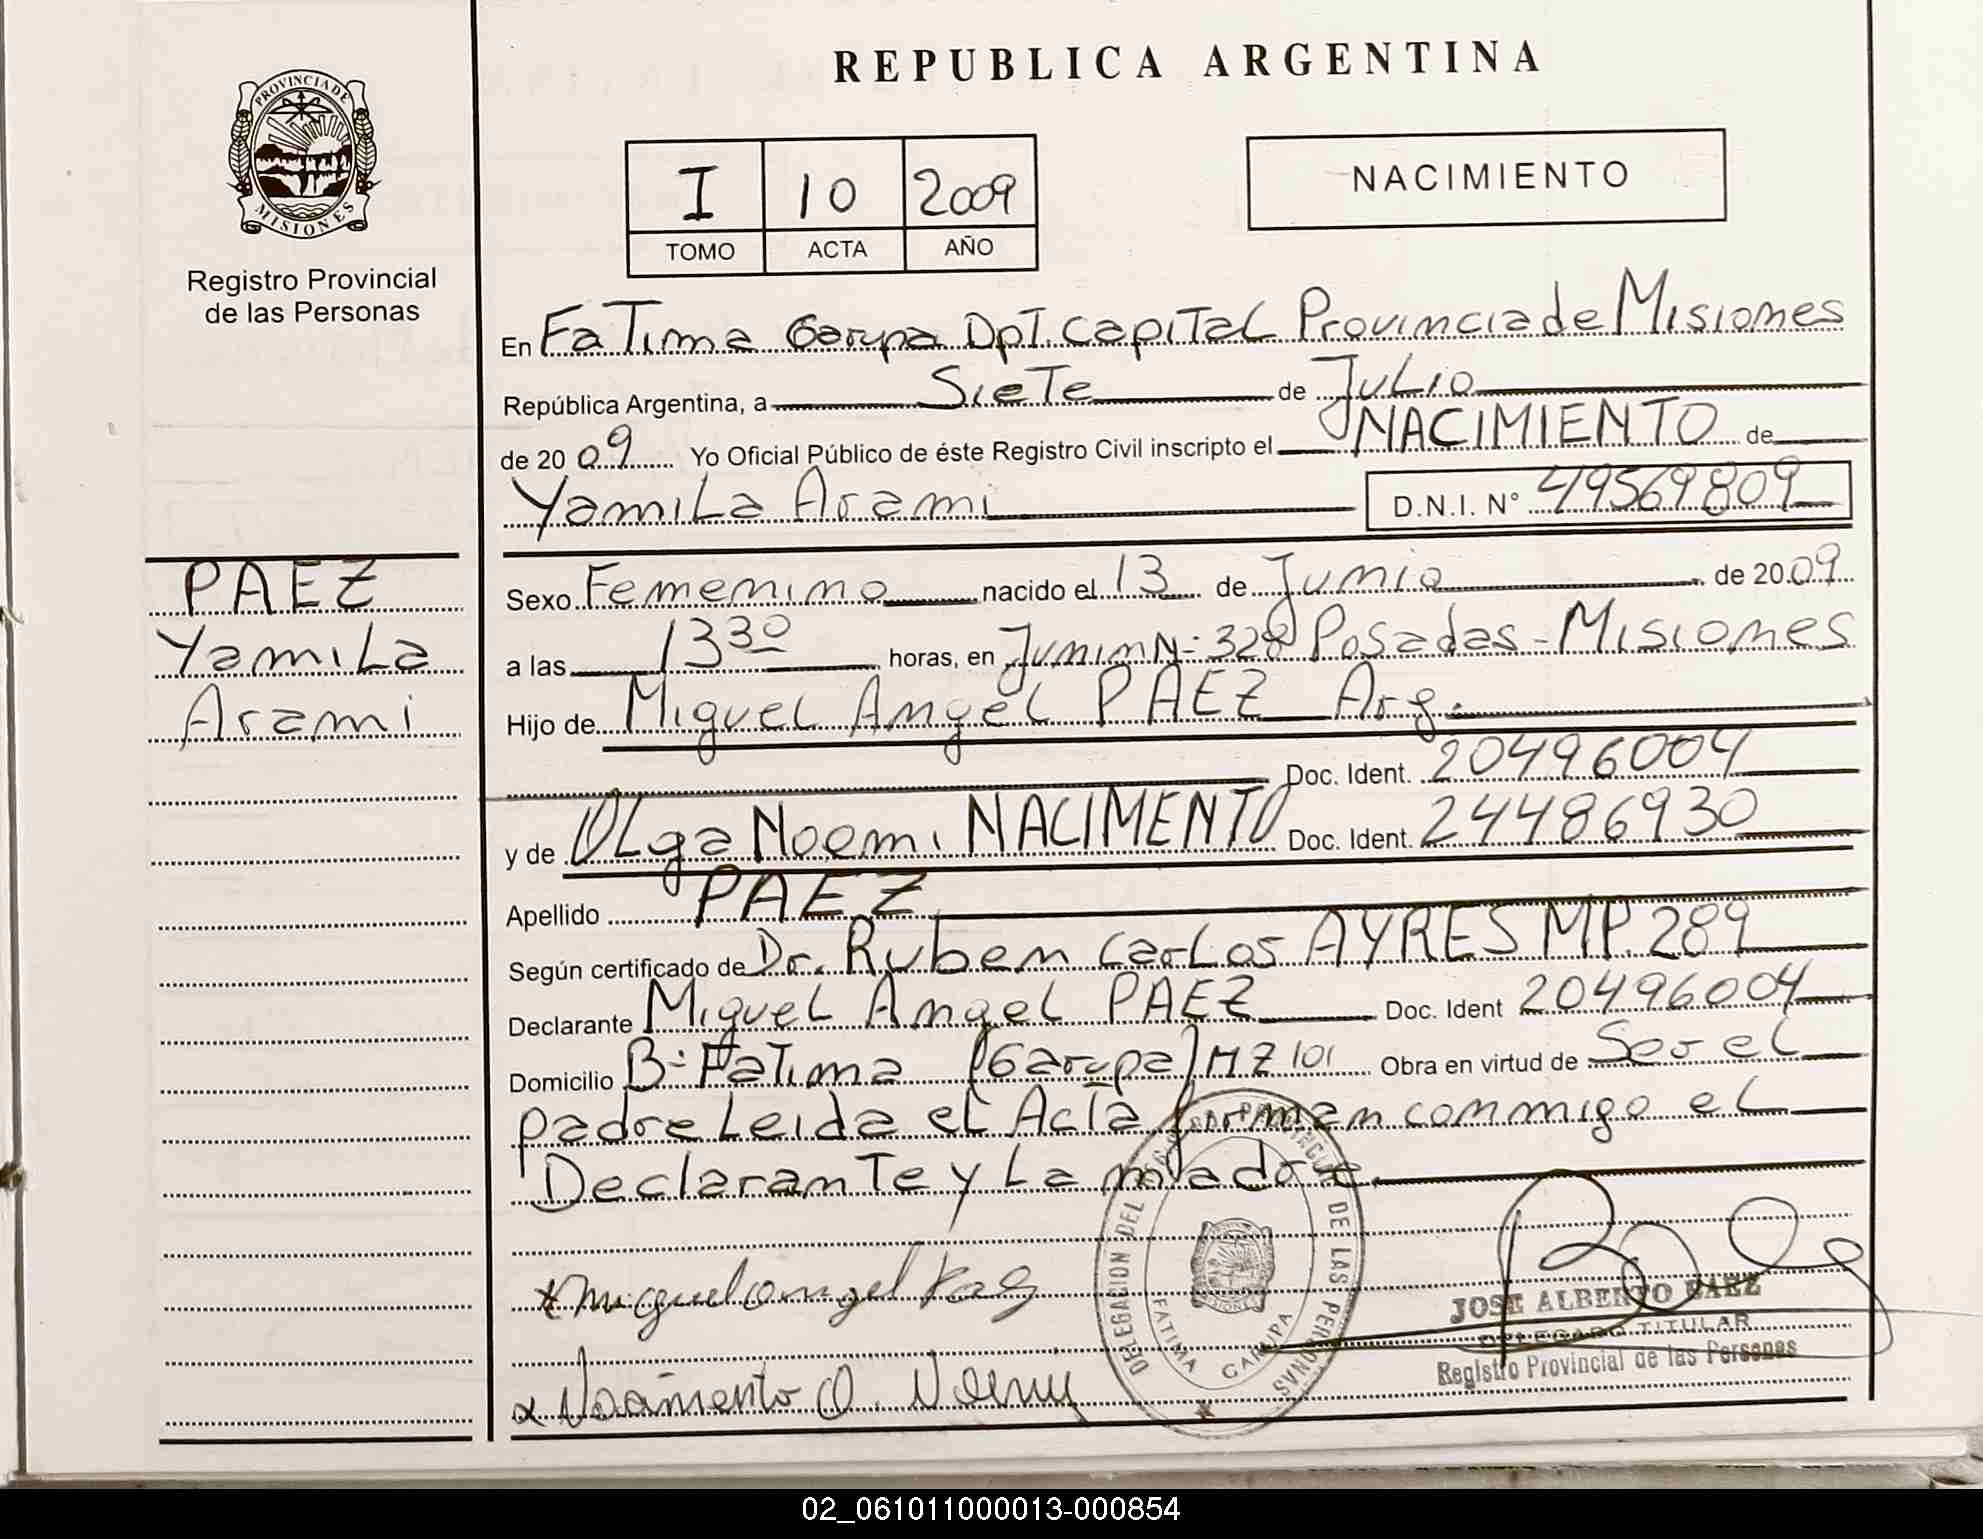 REPUBLICA ARGENTINA
PROVINCIA DE
MISIONES
Registro Provincial
de las Personas
I 10 2009
TOMO ACTA AÑO
NACIMIENTO
En FaTima Garupa DpT. CapiTaL Provincia de Misiones
República Argentina, a SieTe de JuLio
de 2009 Yo Oficial Público de éste Registro Civil inscripto el NACIMIENTO de
YamiLa Arami D.N.I. N° 49569809
PAEZ
YamiLa
Arami
Sexo Femenino nacido el 13 de Junio de 2009
a las 13 30 horas, en Junin N: 328 Posadas - Misiones
Hijo de MigueL AngeL PAEZ Arg.
Doc. Ident. 20496004
y de OLga Noemi NACIMENTO Doc. Ident. 24486930
Apellido PAEZ
Según certificado de Dr. Ruben CarLos AYRES MP. 289
Declarante MigueL AngeL PAEZ Doc. Ident 20496004
Domicilio B: FaTima (Garupa) MZ 101 Obra en virtud de Ser eL
padre Leida eL Acta firman conmigo eL
DeclaranTe y La madre
DELEGACION DEL REG. PROVINCIAL DE LAS PERSONAS
FATIMA GARUPA
miguel angel Paez
JOSE ALBERTO BAEZ
DELEGADO TITULAR
Registro Provincial de las Personas
Nacimento O. Noemi
02_061011000013-000854